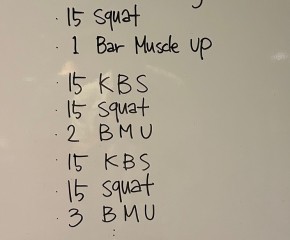 · 15 Squat
· 1 Bar Muscle up
· 15 KBS
· 15 Squat
· 2 BMU
· 15 KBS
· 15 Squat
· 3 BMU
: